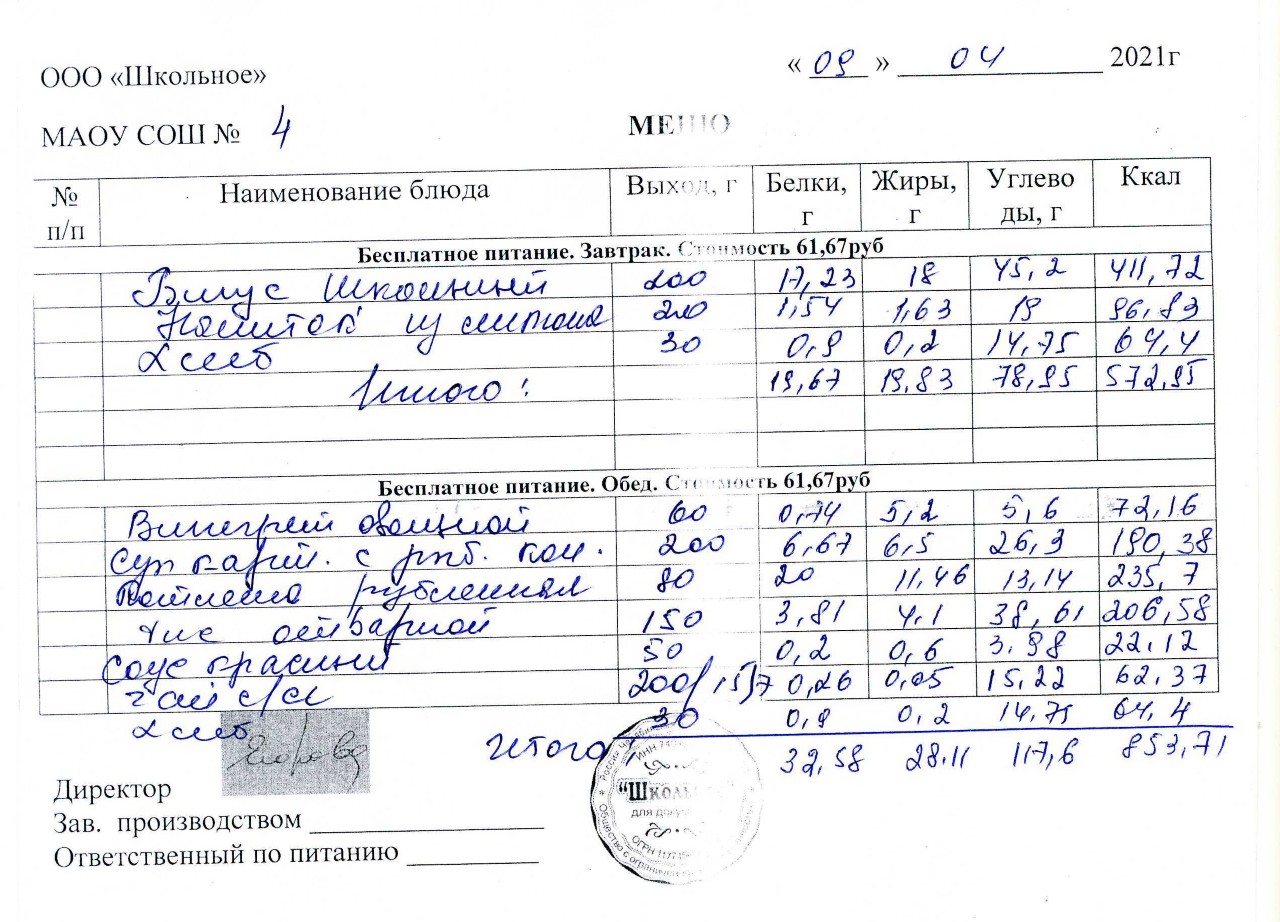 ООО «Школьное»
« 09 » 04 2021г
МАОУ СОШ № 4
МЕНЮ
№ п/п Наименование блюда Выход, г Белки, г Жиры, г Углеводы, г Ккал
Бесплатное питание. Завтрак. Стоимость 61,67руб
школьный 200 17,23 18 45,2 411,72
Напиток из 200 1,54 1,63 19 96,83
Хлеб 30 0,9 0,2 14,75 64,4
Итого: 19,67 19,83 78,95 572,95
Бесплатное питание. Обед. Стоимость 61,67руб
Винегрет овощной 60 0,74 5,2 5,6 72,16
Суп карт. с рыб. кон. 200 6,67 6,5 26,9 190,38
Котлета рубленная 80 20 11,46 13,14 235,7
Рис отварной 150 3,81 4,1 38,61 206,58
Соус красный 50 0,2 0,6 3,98 22,12
Чай с/с 200/15/7 0,26 0,05 15,22 62,37
Хлеб 30 0,9 0,2 14,75 64,4
Итого: 32,58 28.11 117,6 853,71
Директор
Зав. производством
Ответственный по питанию
"Школьное"
для